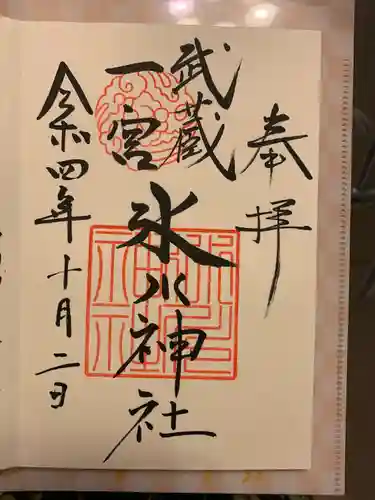 奉拝
武蔵
一宮
氷川神社
令和四年十月二日
氷川神社